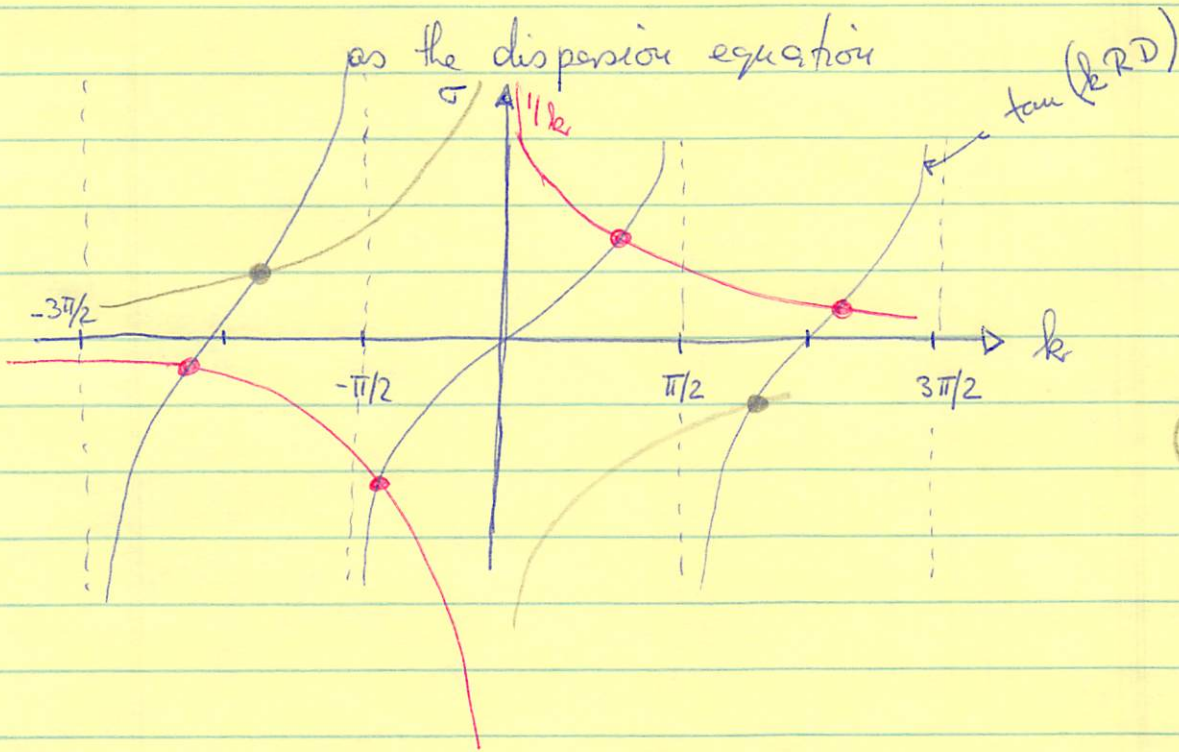 as the dispersion equation
σ
1/k
tan (kRD)
-3π/2
-π/2
π/2
3π/2
k